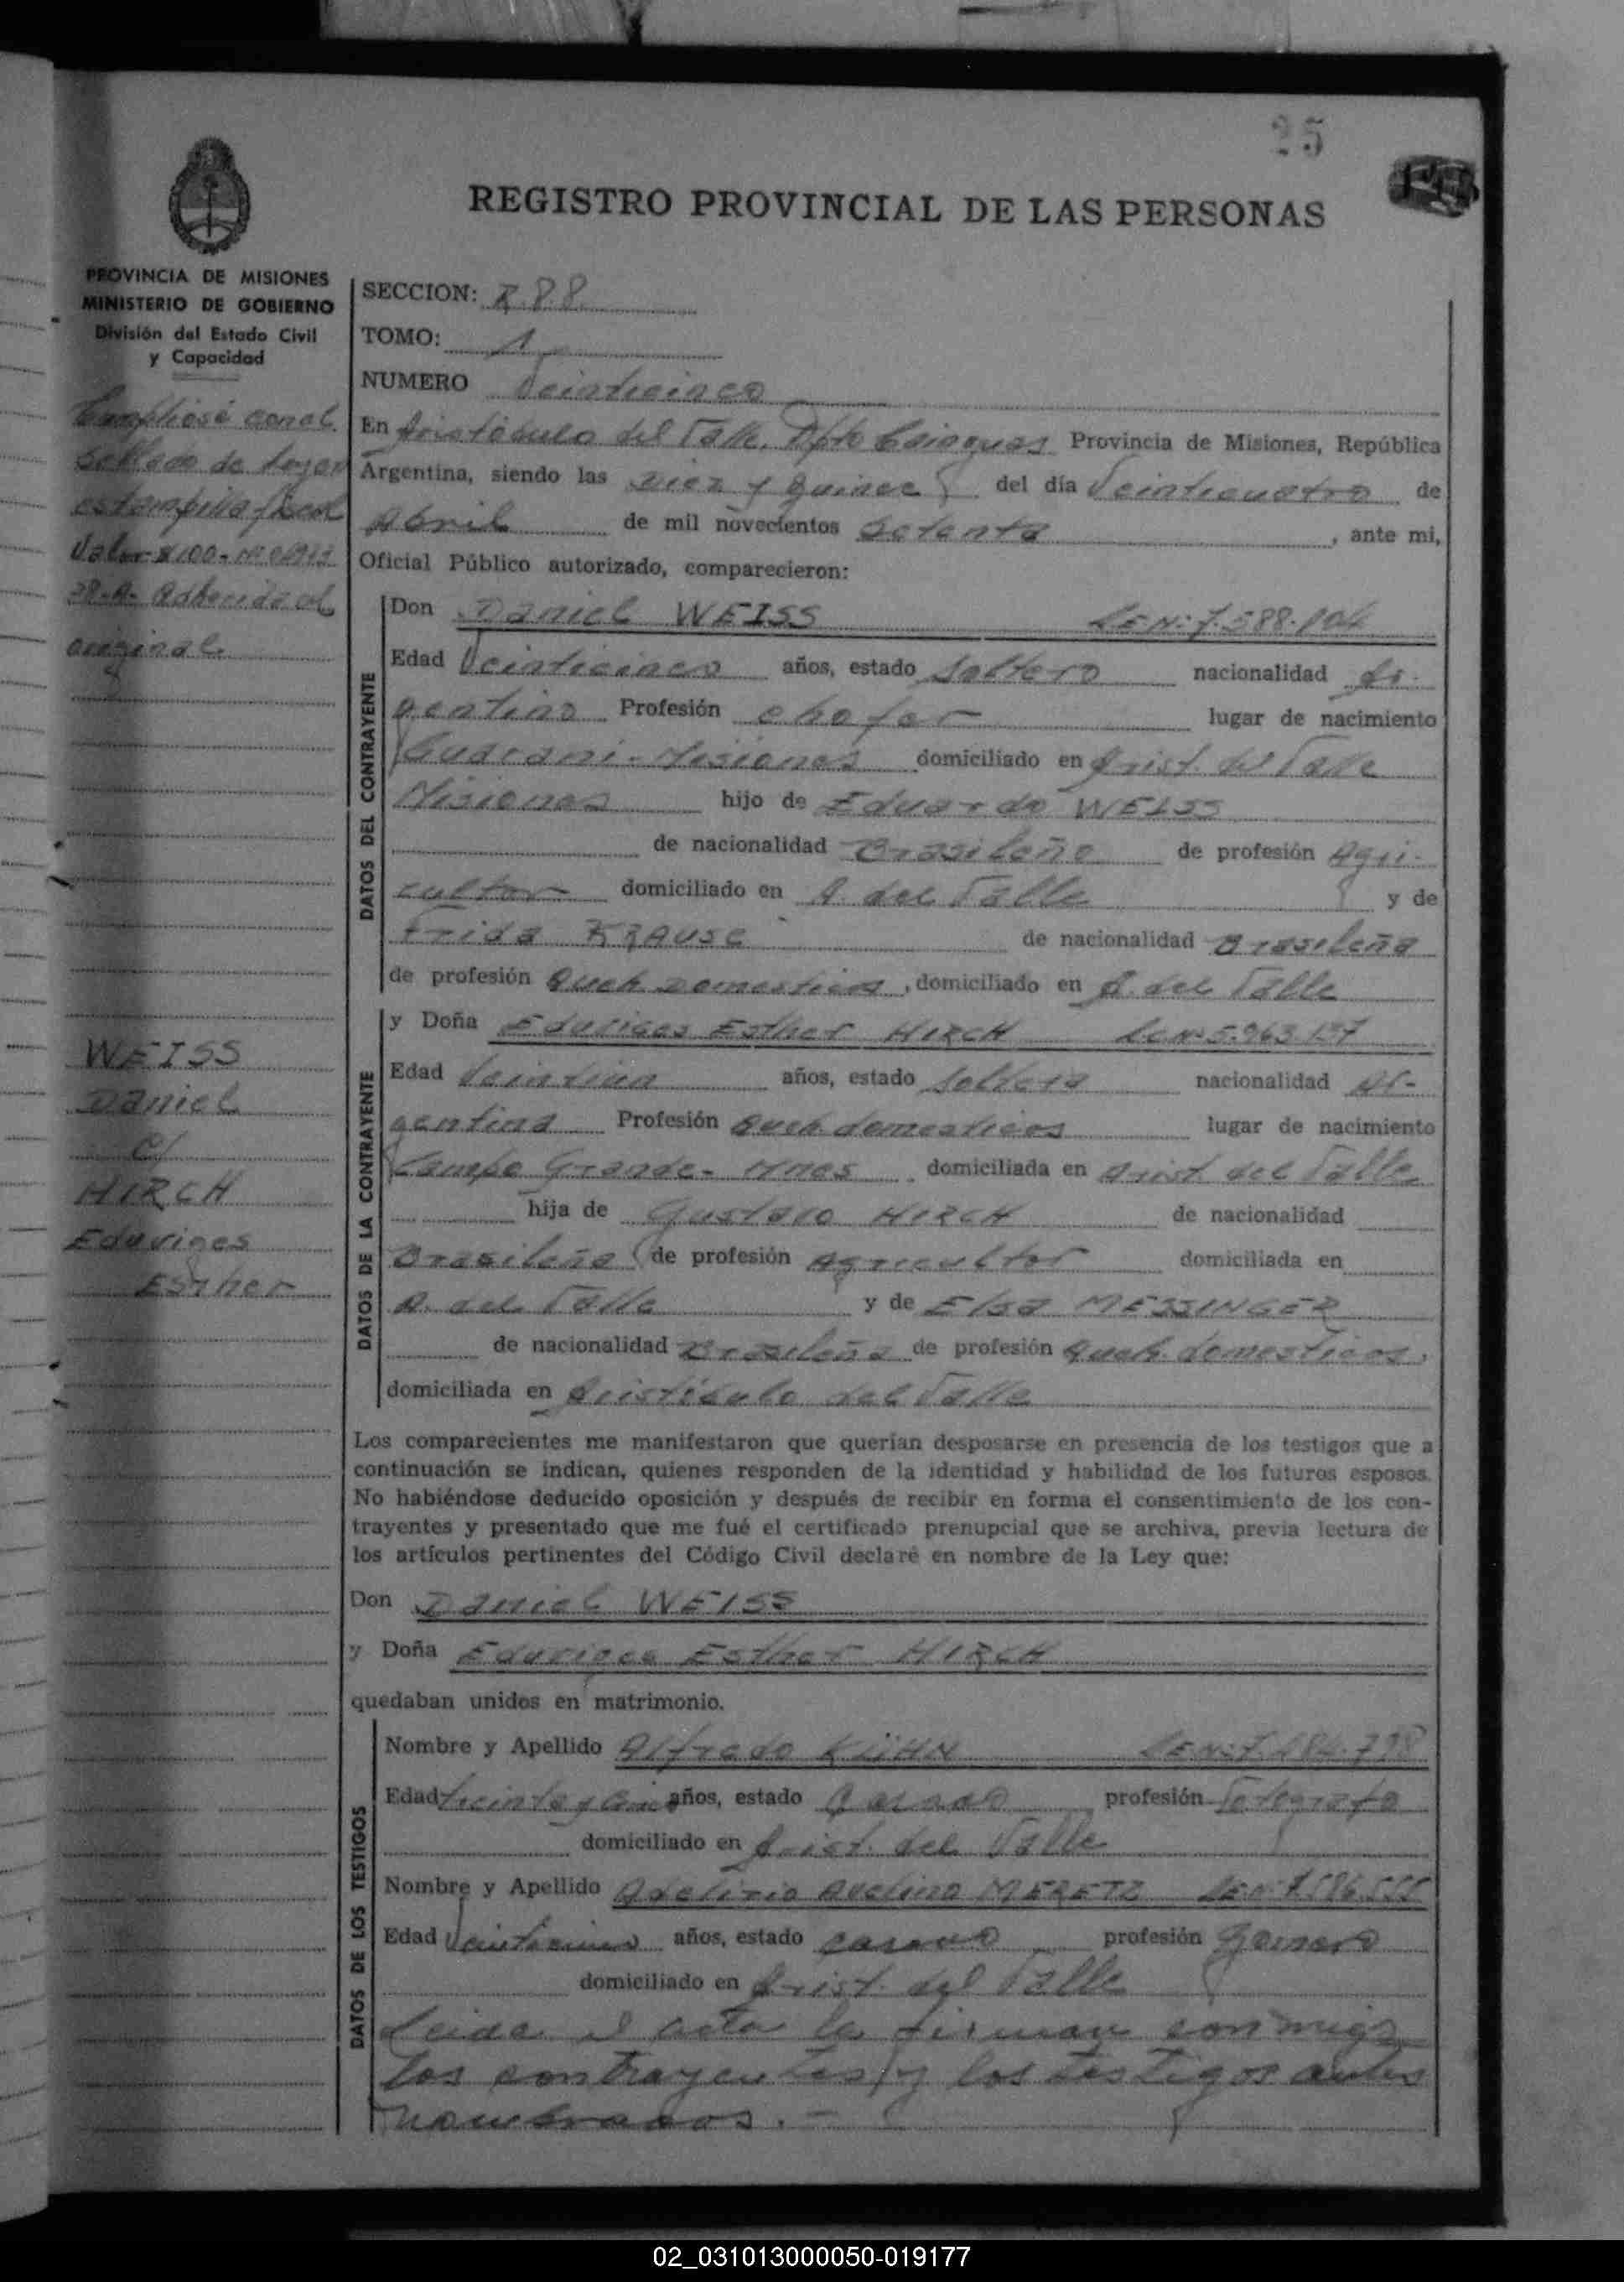 25
REGISTRO PROVINCIAL DE LAS PERSONAS
PROVINCIA DE MISIONES
MINISTERIO DE GOBIERNO
División del Estado Civil
y Capacidad
SECCION: R.P.P.
TOMO: 1
NUMERO Veinticinco
En Aristóbulo del Valle, Dpto Cainguas Provincia de Misiones, República
Argentina, siendo las diez y quince del día Veinticuatro de
Abril de mil novecientos Setenta, ante mi,
Oficial Público autorizado, comparecieron:
sellado de
estampilla fiscal
Valor $100.- Nº
adherida al
original
DATOS DEL CONTRAYENTE
Don Daniel WEISS L.E Nº: 7.588.104
Edad Veinticinco años, estado Soltero nacionalidad Ar-
gentino Profesión chofer lugar de nacimiento
Guarani-Misiones domiciliado en Arist. del Valle
Misiones hijo de Eduardo WEISS
de nacionalidad Brasileño de profesión Agri-
cultor domiciliado en A. del Valle y de
Frida KRAUSE de nacionalidad Brasileña
de profesión Queh. Domesticos, domiciliado en A. del Valle
WEISS
Daniel
c/
HIRCH
Eduviges
Esther
DATOS DE LA CONTRAYENTE
y Doña Eduviges Esther HIRCH L.C Nº 5.963.137
Edad Veintiun años, estado Soltera nacionalidad Ar-
gentina Profesión Queh. domesticos lugar de nacimiento
Campo Grande- Mnes domiciliada en Arist. del Valle
hija de Gustavo HIRCH de nacionalidad
Brasileña de profesión Agricultor domiciliada en
A. del Valle y de Elsa MESSINGER
de nacionalidad Brasileña de profesión Queh. domesticos,
domiciliada en Aristóbulo del Valle
Los comparecientes me manifestaron que querían desposarse en presencia de los testigos que a
continuación se indican, quienes responden de la identidad y habilidad de los futuros esposos.
No habiéndose deducido oposición y después de recibir en forma el consentimiento de los con-
trayentes y presentado que me fué el certificado prenupcial que se archiva, previa lectura de
los artículos pertinentes del Código Civil declaré en nombre de la Ley que:
Don Daniel WEISS
y Doña Eduviges Esther HIRCH
quedaban unidos en matrimonio.
DATOS DE LOS TESTIGOS
Nombre y Apellido Alfredo KÜHN L.E Nº: 7.
Edad treinta y años, estado Casado profesión Fotografo
domiciliado en Arist. del Valle
Nombre y Apellido Adelirio Avelino MERETZ L.E.Nº
Edad Veinticinco años, estado casado profesión Gomero
domiciliado en Arist. del Valle
Leida el acta la firman conmigo
los contrayentes y los testigos antes
nombrados.-
02_031013000050-019177